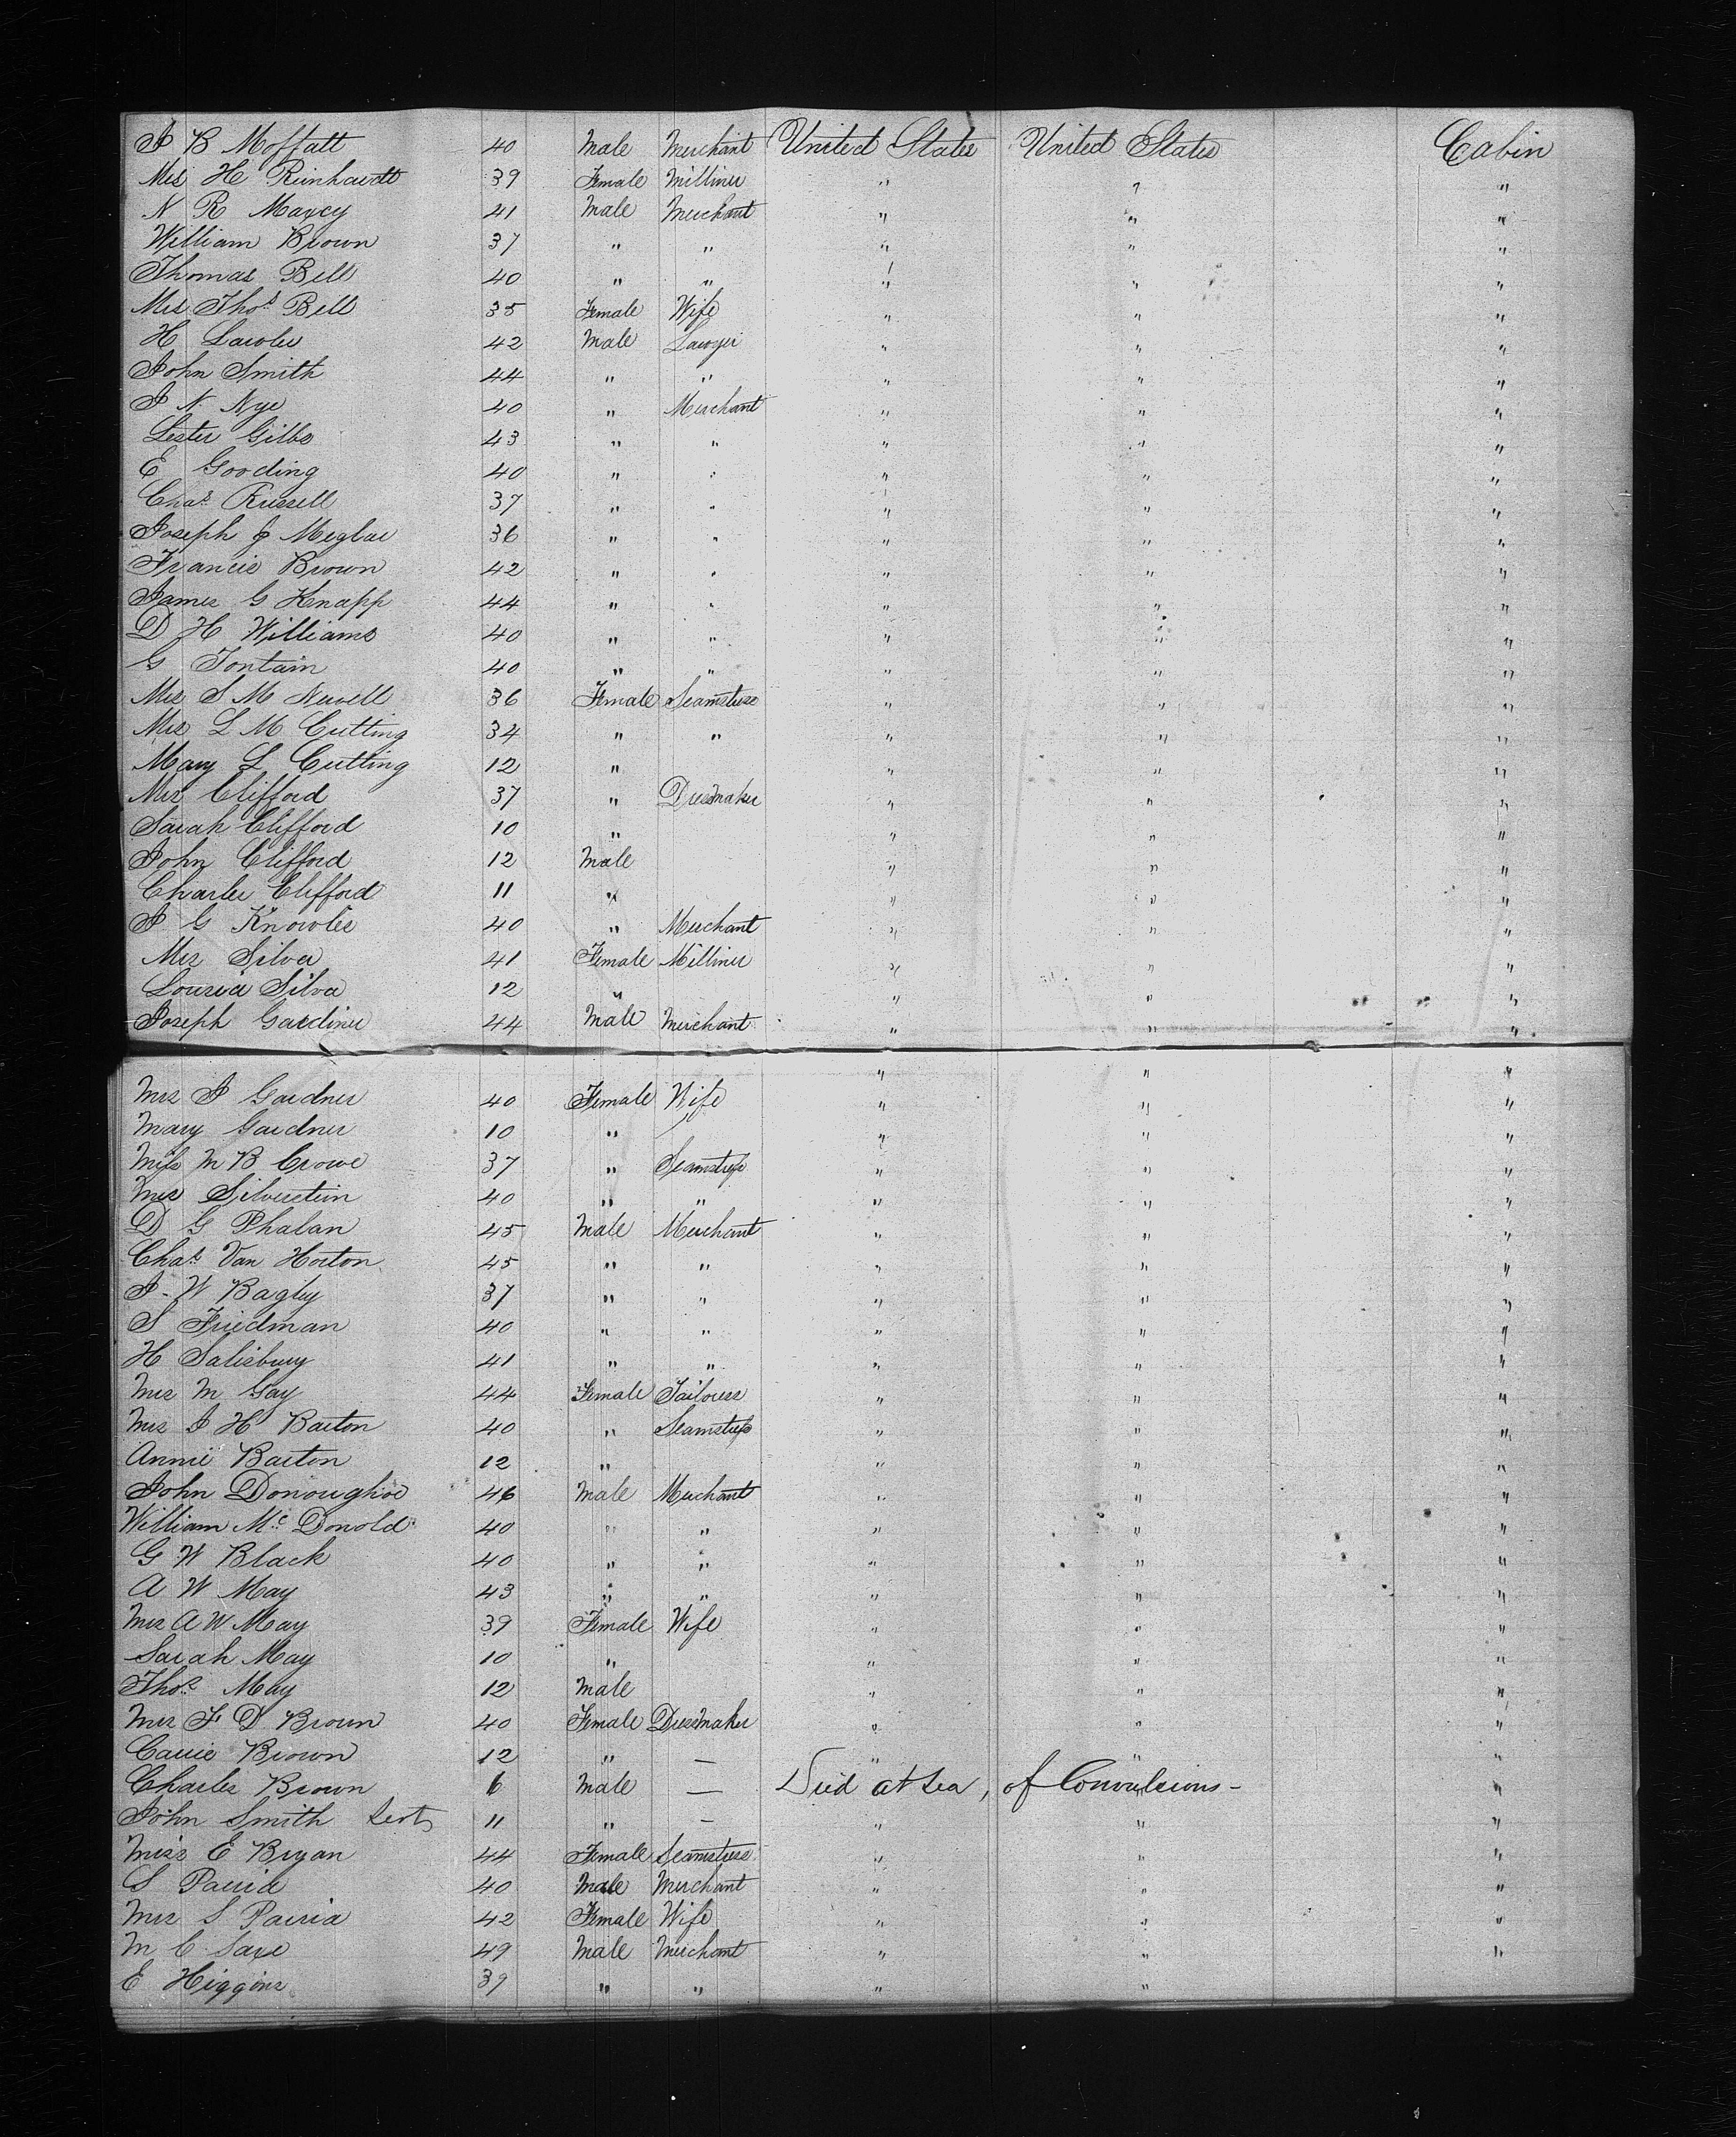 J B Moffatt 40 Male Merchant United States United States Cabin
Mrs H Reinhardt 39 Female Milliner " " "
N R Maxcy 41 Male Merchant " " "
William Brown 37 " " " " "
Thomas Bell 40 " " " " "
Mrs Thos Bell 35 Female Wife " " "
H Lawler 42 Male Lawyer " " "
John Smith 44 " " " " "
J N Nye 40 " Merchant " " "
Lester Gilbs 43 " " " " "
E Gooding 40 " " " " "
Chas Russell 37 " " " " "
Joseph J Meglar 36 " " " " "
Francis Brown 42 " " " " "
James G Knapp 44 " " " " "
D H Williams 40 " " " " "
G Fontain 40 " " " " "
Mrs S M Newell 36 Female Seamstress " " "
Mrs L M Cutting 34 " " " " "
Mary L Cutting 12 " " " "
Mrs Clifford 37 " Dressmaker " " "
Sarah Clifford 10 " " " "
John Clifford 12 Male " " "
Charles Clifford 11 " " " "
J G Knowles 40 " Merchant " " "
Mrs Silva 41 Female Milliner " " "
Louria Silva 12 " " " "
Joseph Gardiner 44 Male Merchant " " "
" " "
Mrs J Gardner 40 Female Wife " " "
Mary Gardner 10 " " " "
Miss M B Crowe 37 " Seamstress " " "
Mrs Silverstein 40 " " " " "
D G Phalan 45 Male Merchant " " "
Chas Van Horton 45 " " " " "
J. W Bagley 37 " " " " "
S Friedman 40 " " " " "
H Salisbury 41 " " " " "
Mrs M Gay 44 Female Tailoress " " "
Mrs J H Barton 40 " Seamstress " " "
Annie Barton 12 " " " "
John Donoughoe 46 Male Merchant " " "
William Mc Donold 40 " " " " "
G W Black 40 " " " " "
A W May 43 " " " " "
Mrs A W May 39 Female Wife " " "
Sarah May 10 " " " "
Thos May 12 Male " " "
Mrs F D Brown 40 Female Dressmaker " " "
Carrie Brown 12 " — " " "
Charles Brown 6 Male — Died at sea, of Convulsions - "
John Smith 11 " — " " "
Miss E Bryan 44 Female Seamstress " " "
S Parria 40 Male Merchant " " "
Mrs S Parria 42 Female Wife " " "
M C Saxe 49 Male Merchant " " "
E Higgins 39 " " " "